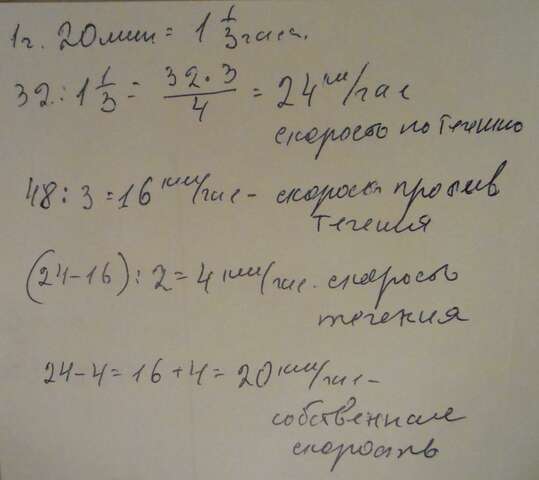 1ч. 20мин = 1 1/3 часа.
32 : 1 1/3 = 32·3/4 = 24 км/час
скорость по течению
48 : 3 = 16 км/час - скорость против
течения
(24-16) : 2 = 4 км/час. скорость
течения
24-4 = 16+4 = 20 км/час -
собственная
скорость